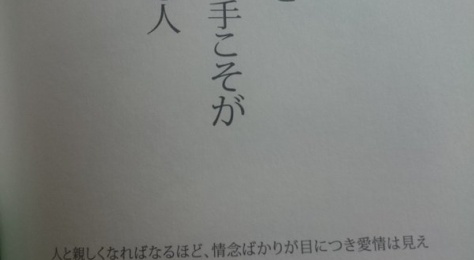 手こそが
人
人と親しくなればなるほど、情念ばかりが目につき愛情は見え